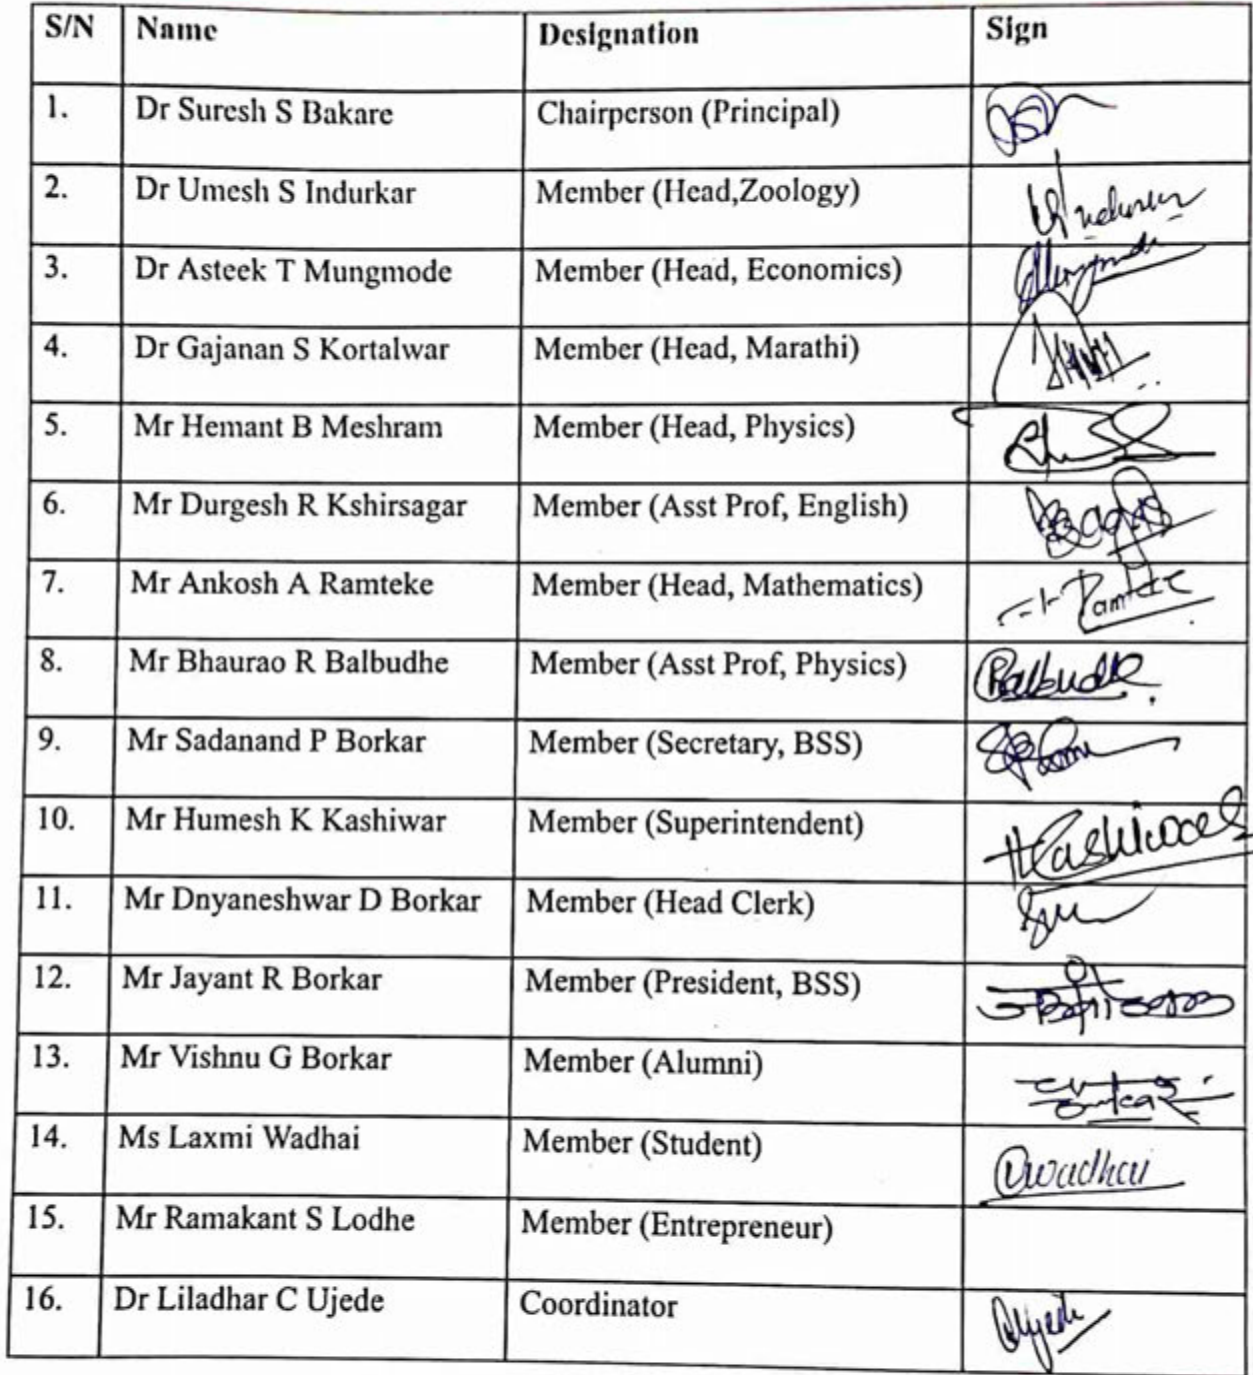 S/N Name Designation Sign
1. Dr Suresh S Bakare Chairperson (Principal)
2. Dr Umesh S Indurkar Member (Head,Zoology)
3. Dr Asteek T Mungmode Member (Head, Economics)
4. Dr Gajanan S Kortalwar Member (Head, Marathi)
5. Mr Hemant B Meshram Member (Head, Physics)
6. Mr Durgesh R Kshirsagar Member (Asst Prof, English)
7. Mr Ankosh A Ramteke Member (Head, Mathematics)
8. Mr Bhaurao R Balbudhe Member (Asst Prof, Physics)
9. Mr Sadanand P Borkar Member (Secretary, BSS)
10. Mr Humesh K Kashiwar Member (Superintendent)
11. Mr Dnyaneshwar D Borkar Member (Head Clerk)
12. Mr Jayant R Borkar Member (President, BSS)
13. Mr Vishnu G Borkar Member (Alumni)
14. Ms Laxmi Wadhai Member (Student)
15. Mr Ramakant S Lodhe Member (Entrepreneur)
16. Dr Liladhar C Ujede Coordinator